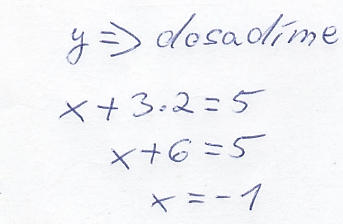 y => dosadíme
x + 3.2 = 5
x + 6 = 5
x = -1